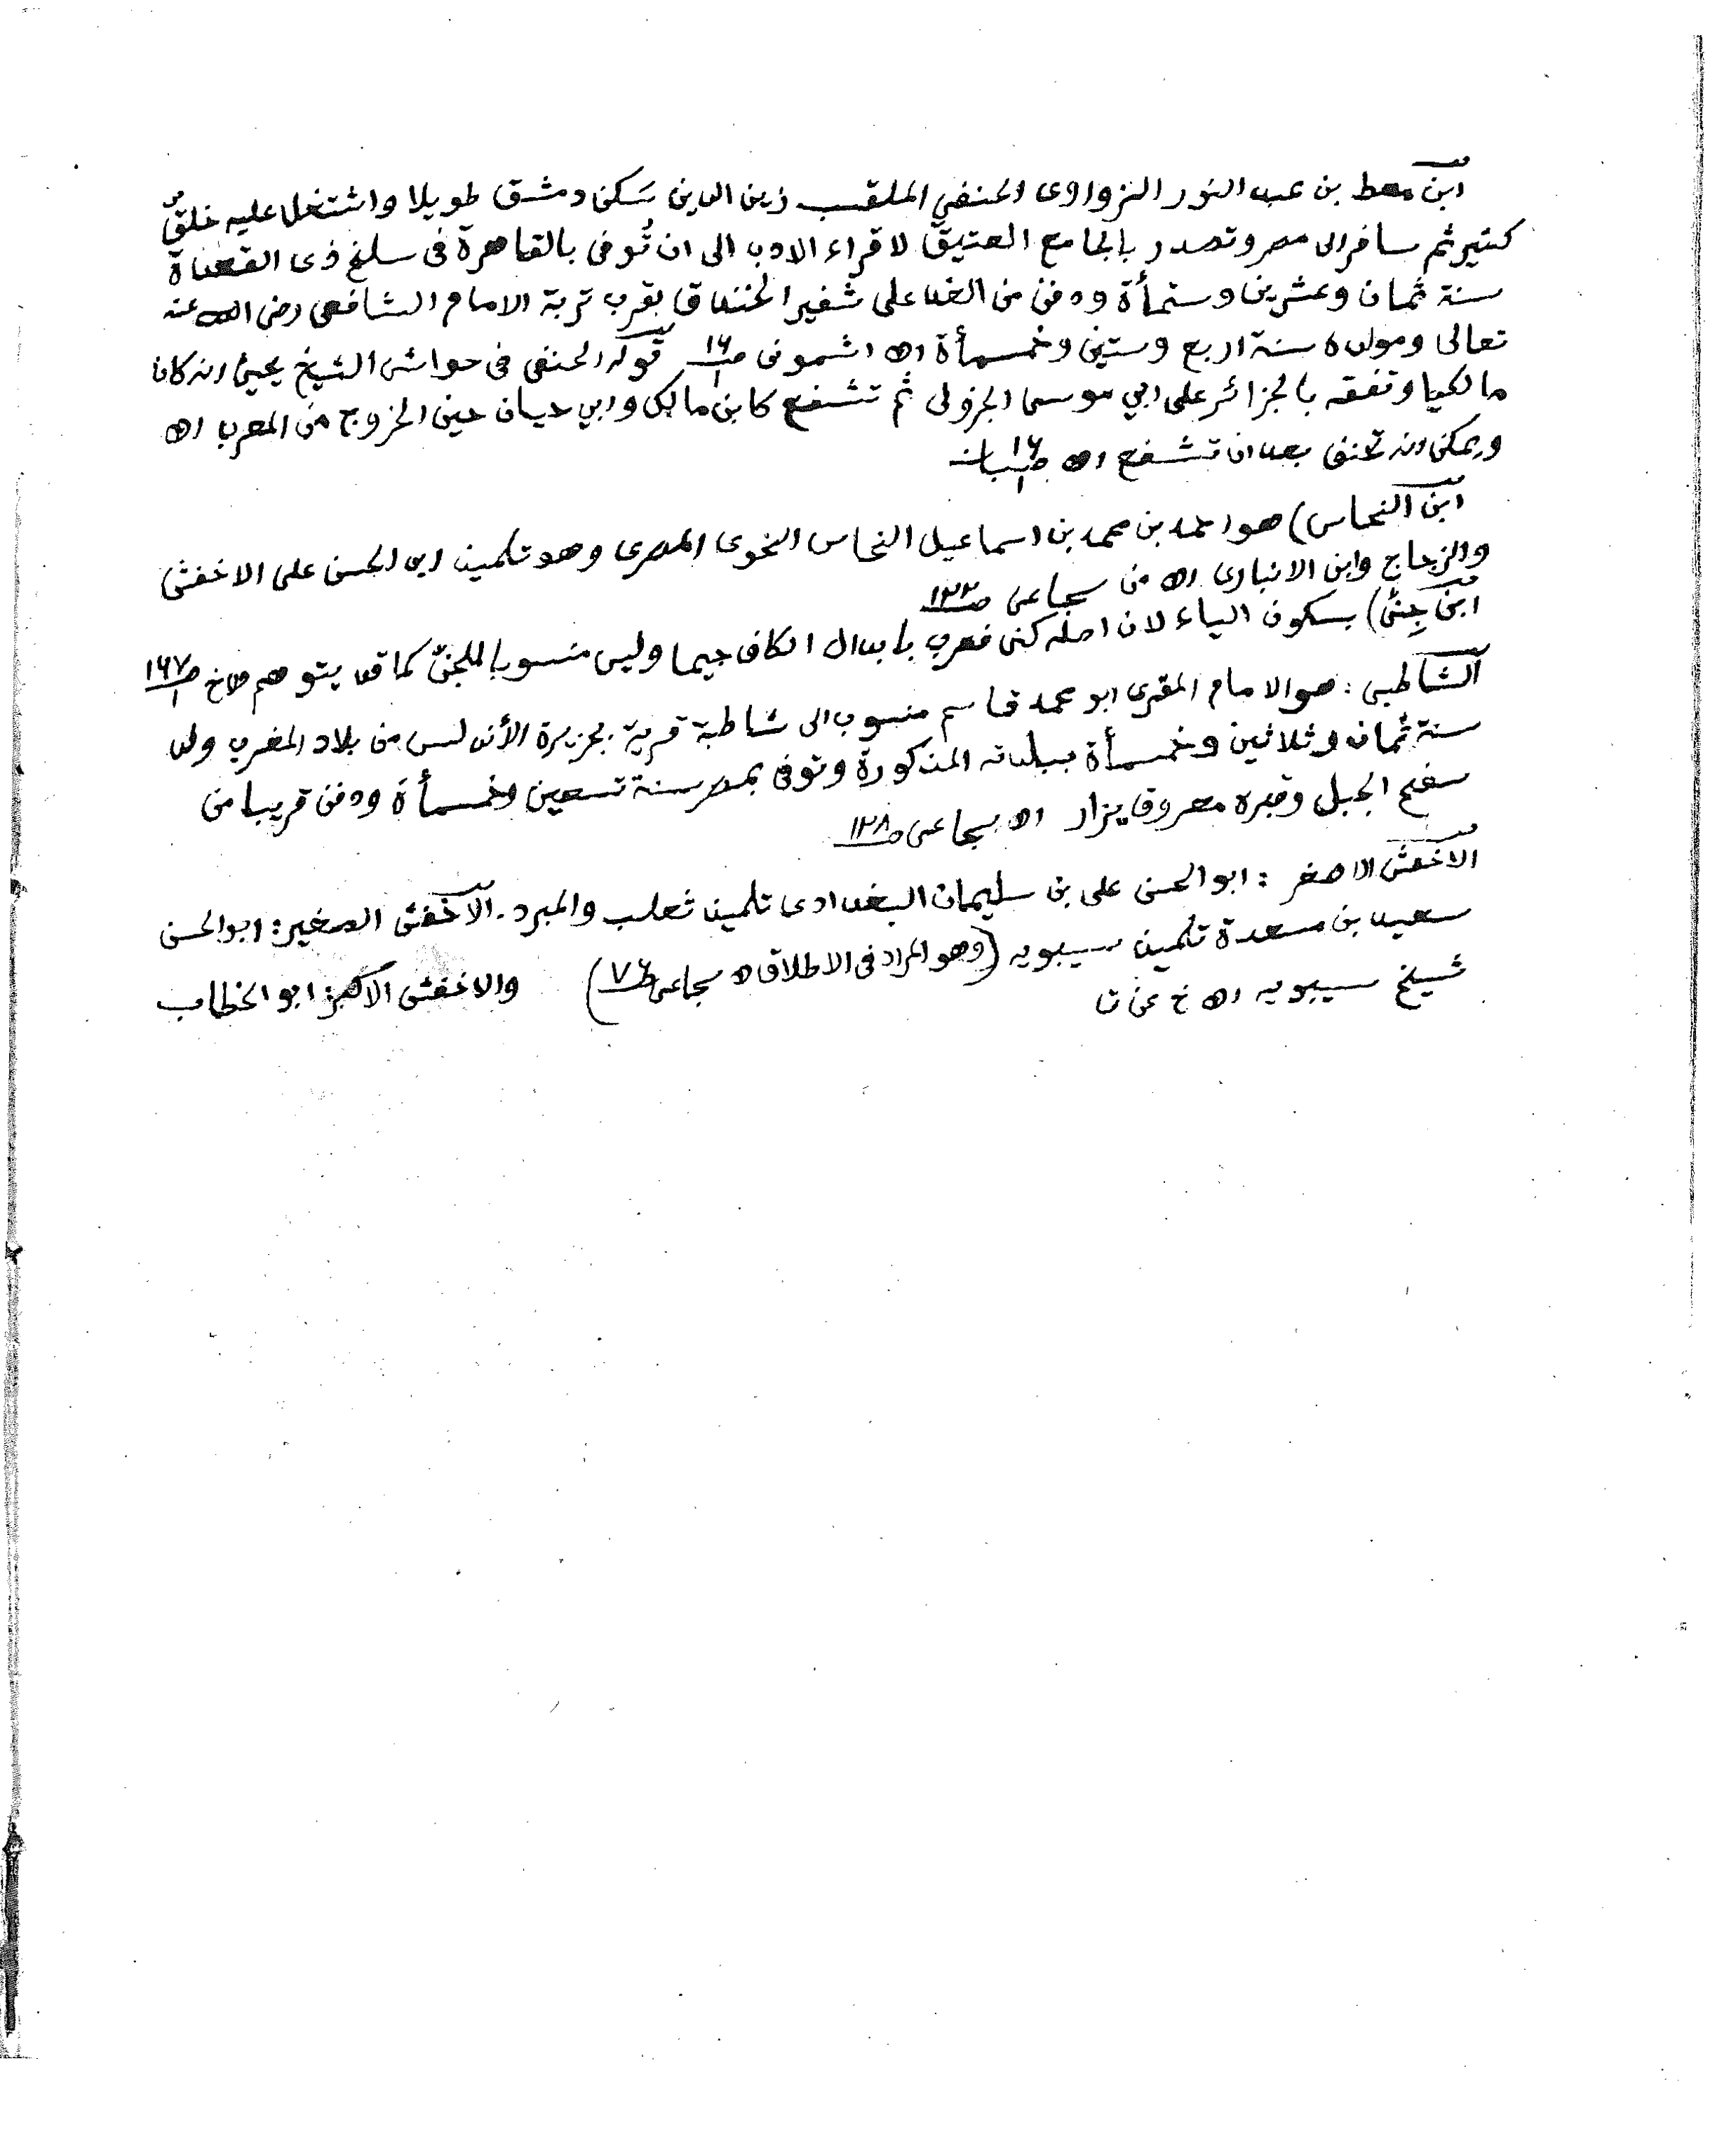 ابن معط بن عبد النور الزواوى الحنفي الملقب زين الدين سَكن دمشق طويلا واشتغل عليه خلقٌ
كثير ثم سافر الى مصر وتصدر بالجامع العتيق لاقراء الادب الى ان تُوفى بالقاهرة فى سلخ ذى القعدة
سنة ثمان وعشرين وستمأة ودفن من الغد على شفير الخندق بقرب تربة الامام الشافعى رضى الله عنه
تعالى ومولده سنة اربع وستين وخمسمأة اه اشمونى ص١٦/١ قوله الحنفى فى حواشى الشيخ يحيى انه كان
مالكيا وتفقه بالجزائر على ابي موسى الجزولى ثم تشفع كابن مالك وابي حيان حين الخروج من المغرب اه
ويمكن انه تحنف بعد ان تشفع اه صبان ١٦/١
ابن النحاس) هو احمد بن محمد بن اسماعيل النحاس النحوى المصرى وهو تلميذ ابى الحسن على الاخفش
والزجاج وابن الانبارى اه من سجاعى ص١٢٢
ابن جِنىْ) بسكون الياء لان اصله كنى فعرب بابدال الكاف جيما وليس منسوبا للجنّ كما قد يتوهم ١٦٧/١
الشاطبى : هو الامام المقرى ابو محمد قاسم منسوب الى شاطبة قرية بجزيرة الأندلس من بلاد المغرب ولد
سنة ثمان وثلاثين وخمسمأة ببلدته المذكورة وتوفى بمصر سنة تسعين وخمسمأة ودفن قريبا من
سفح الجبل وقبره معروف يزار اه سجاعى ص١٢٨
الاخفش الاصغر : ابو الحسن على بن سليمان البغدادى تلميذ ثعلب والمبرد . الاخفش الصغير : ابو الحسن
سعيد بن مسعدة تلميذ سيبويه (وهو المراد فى الاطلاق اه سجاعى ص٧٦) والاخفش الاكبر ابو الخطاب
شيخ سيبويه اه